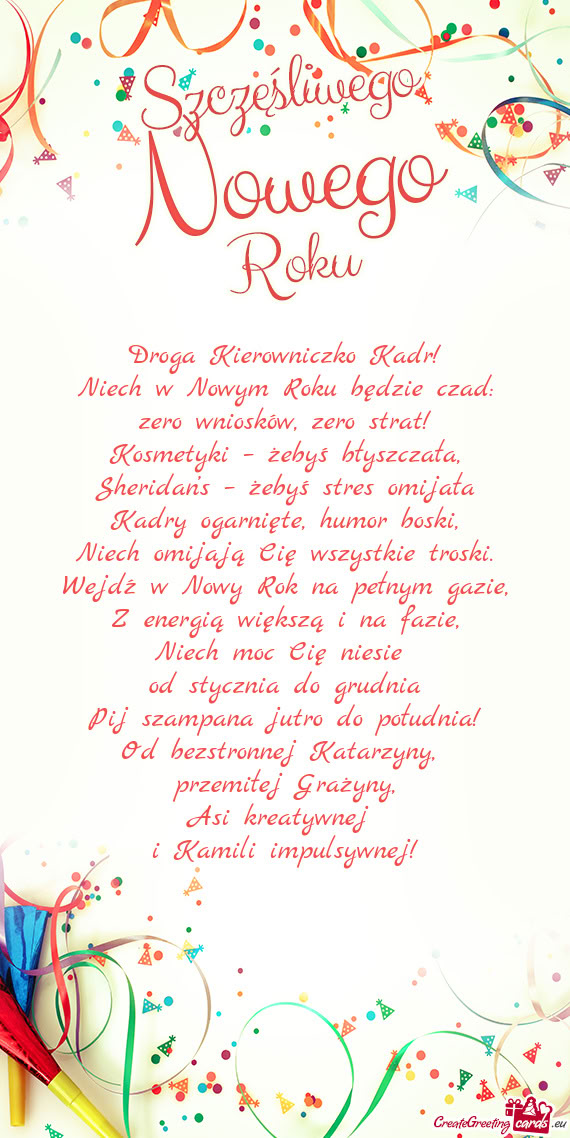 Szczęśliwego
Nowego
Roku
Droga Kierowniczko Kadr!
Niech w Nowym Roku będzie czad:
zero wniosków, zero strat!
Kosmetyki - żebyś błyszczała,
Sheridan's - żebyś stres omijała
Kadry ogarnięte, humor boski,
Niech omijają Cię wszystkie troski.
Wejdź w Nowy Rok na pełnym gazie,
Z energią większą i na fazie,
Niech moc Cię niesie
od stycznia do grudnia
Pij szampana jutro do południa!
Od bezstronnej Katarzyny,
przemiłej Grażyny,
Asi kreatywnej
i Kamili impulsywnej!
CreateGreetingcards.eu